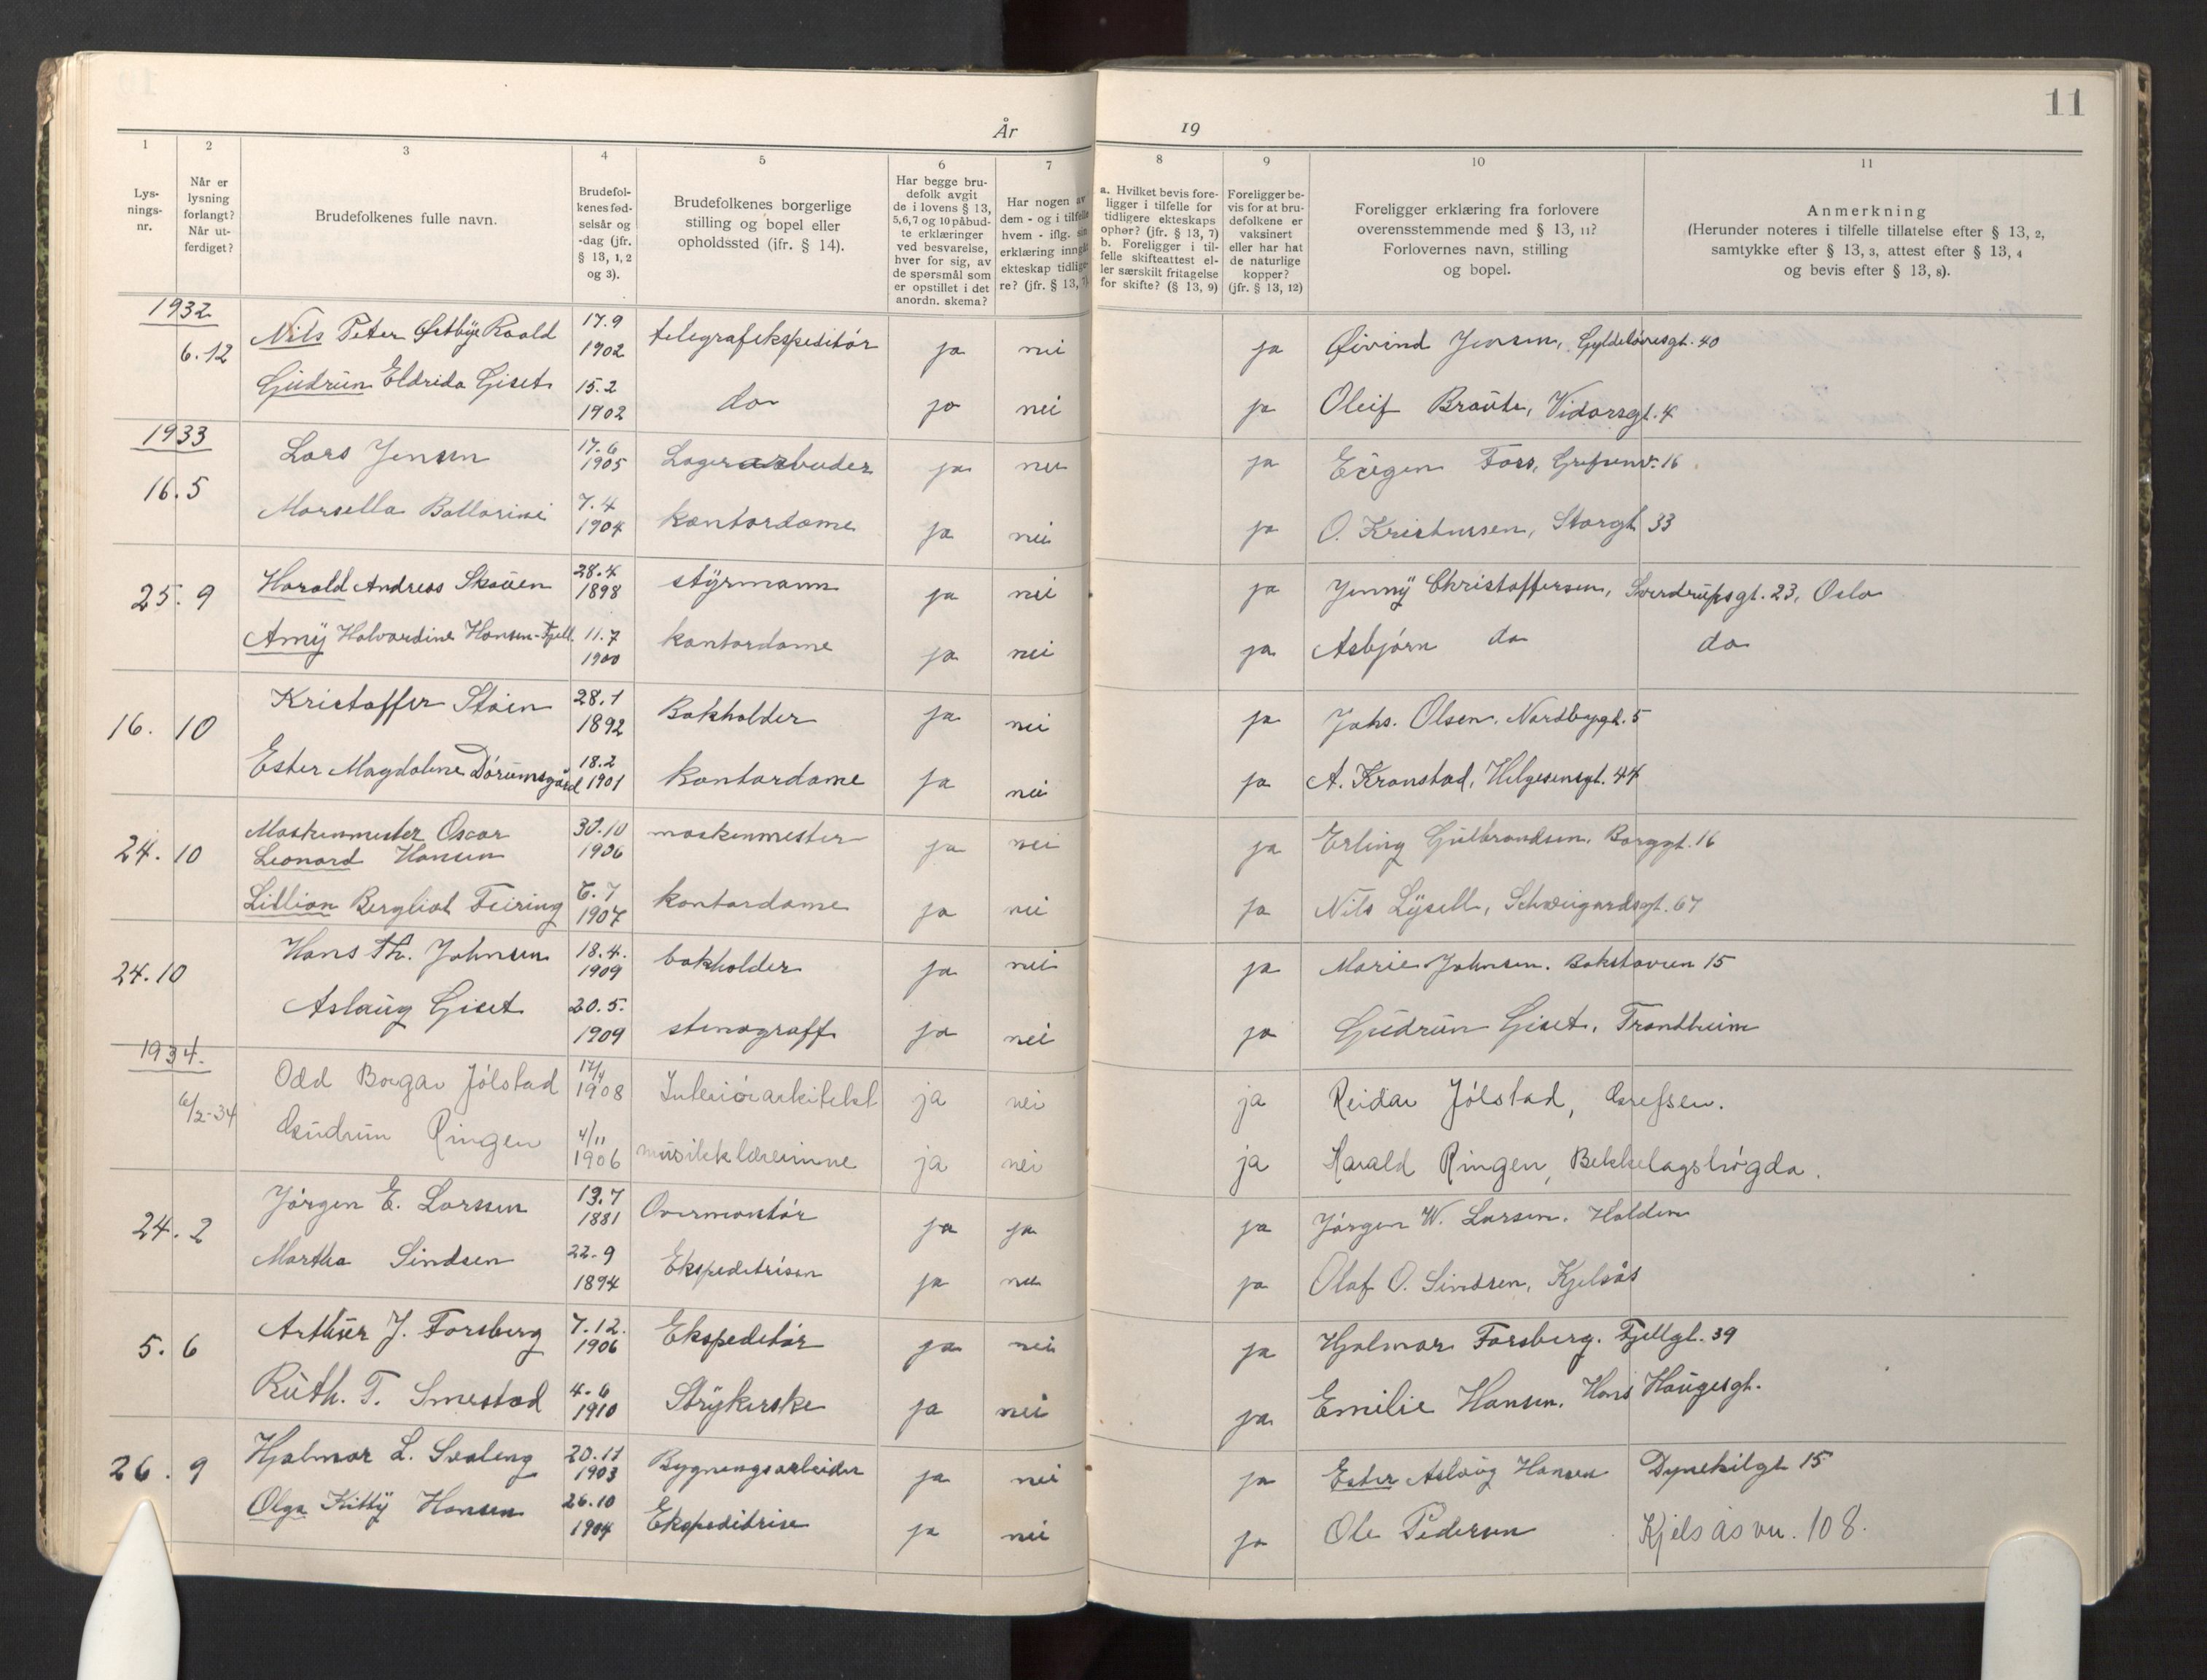 11
År 19
1 2 3 4 5 6 7 8 9 10 11
Lys-
nings-
nr.
Når er
lysning
forlangt?
Når ut-
ferdiget?
Brudefolkenes fulle navn.
Brudefol-
kenes fød-
selsår og
-dag (jfr.
§ 13, 1, 2
og 3).
Brudefolkenes borgerlige
stilling og bopel eller
opholdssted (ifr. § 14).
Har begge bru-
defolk avgit
de i lovens § 13,
5,6,7 og 10 påbud-
te erklæringer
ved besvarelse,
hver for sig, av
de spørsmål som
er opstillet i det
anordn. skema?
Har nogen av
dem - og i tilfelle
hvem - iflg. sin
erklæring inngått
ekteskap tidlige-
re? (jfr. § 13, 7)
a. Hvilket bevis fore-
ligger i tilfelle for
tidligere ekteskaps
ophør? (jfr. § 13, 7)
b. Foreligger i til-
felle skifteattest el-
ler særskilt fritagelse
for skifte? (§ 13, 9)
Foreligger be-
vis for at bru-
defolkene er
vaksinert
eller har hat
de naturlige
kopper?
(jfr. § 13, 12)
Foreligger erklæring fra forlovere
overensstemmende med § 13, 11?
Forlovernes navn, stilling
og bopel.
Anmerkning
(Herunder noteres i tilfelle tillatelse efter § 13, 2,
samtykke efter § 13, 3, attest efter § 13, 4
og bevis efter § 13, 8).
1932
6.12 Nils Peter Østbye Roald 17.9 1902 telegrafekspeditór ja nei ja Øivind Jensen, Gyldeløvesgt. 40
Gudrun Eldrida Giset 15.2 1902 do ja nei ja Oleif Braute, Vidarsgt. 4
1933
16.5 Lars Jensen 17.6 1905 Lagerarbeider ja nei ja Eugen Fors, Grefsenv. 16
Marsella Ballarini 7.4 1904 kontordame ja nei ja O. Kristensen, Storgt 33
25.9 Harald Andreas Skauen 28.4 1898 styrmann ja nei ja Jenny Christoffersen, Sverdrupsgt. 23, Oslo
Amy Halvardine Hansen-Fjell. 11.7 1900 kontordame ja nei ja Asbjørn do do
16.10 Kristoffer Støen 28.1 1892 Bokholder ja nei ja Johs. Olsen. Nordbygt. 5
Ester Magdalene Dórumsgård 18.2 1901 kontordame ja nei ja A. Kronstad, Helgesensgt. 44
24.10 Maskinmester Oscar
Leonard Hansen 30.10 1906 maskinmester ja nei ja Erling Gulbrandsen. Borggt. 16
Lillian Bergliot Feiring 6.7 1907 kontordame ja nei ja Nils Lysell, Schweigardsgt. 67
24.10 Hans Th. Johnsen 18.4. 1909 bokholder ja nei ja Marie Johnsen. Bakstavien 15
Aslaug Giset 20.5. 1909 stenograff ja nei ja Gudrun Giset, Trondheim
1934.
6/2-34 Odd Borgar Jólstad 17/4 1908 Interiórarkitekt ja nei ja Reidar Jólstad, Grefsen.
Gudrun Ringen 4/11 1906 musikklærerinne ja nei ja Harald Ringen, Bekkelagshógda.
24.2 Jórgen E. Larssen 13.7 1881 Overmontór ja ja ja Jórgen W. Larsen. Halden
Martha Sindsen 22.9 1894 Ekspeditrisen ja nei ja Olaf O. Sindsen, Kjelsås
5.6 Arthur J. Forsberg 7.12. 1906 Ekspeditór ja nei ja Hjalmar Forsberg. Fjellgt. 39
Ruth. T. Smestad 4.6 1910 Strykerske ja nei ja Emilie Hansen. Hans Haugesgt.
26.9 Hjalmar L. Svaleng 20.11 1903 Bygningsarbeider ja nei ja Ester Aslaug Hansen Dynekilgt 15
Olga Kitty Hansen 26.10 1904 Ekspeditrise ja nei ja Ole Pedersen Kjelsåsvn. 108.